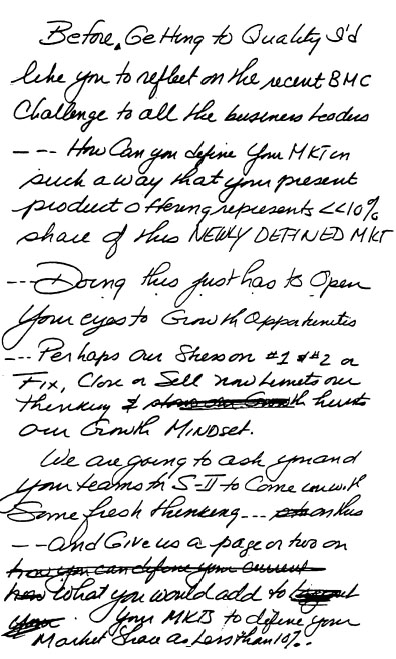 Before Getting to Quality I'd
like you to reflect on the recent BMC
Challenge to all the business leaders
--- How Can you define Your MKT in
such a way that your present
product offering represents <<10%
share of this NEWLY DEFINED MKT
---Doing this just has to Open
Your eyes to Growth Opportunities
--- Perhaps our Stress on #1 & #2 or
Fix, Close or Sell now limits our
thinking & hurts
our Growth MINDSET.
We are going to ask you and
your teams in S-II to Come in with
Some fresh thinking --- on this
-- and Give us a page or two on
what you would add to
your MKTS to define your
Market Share as less than 10%.